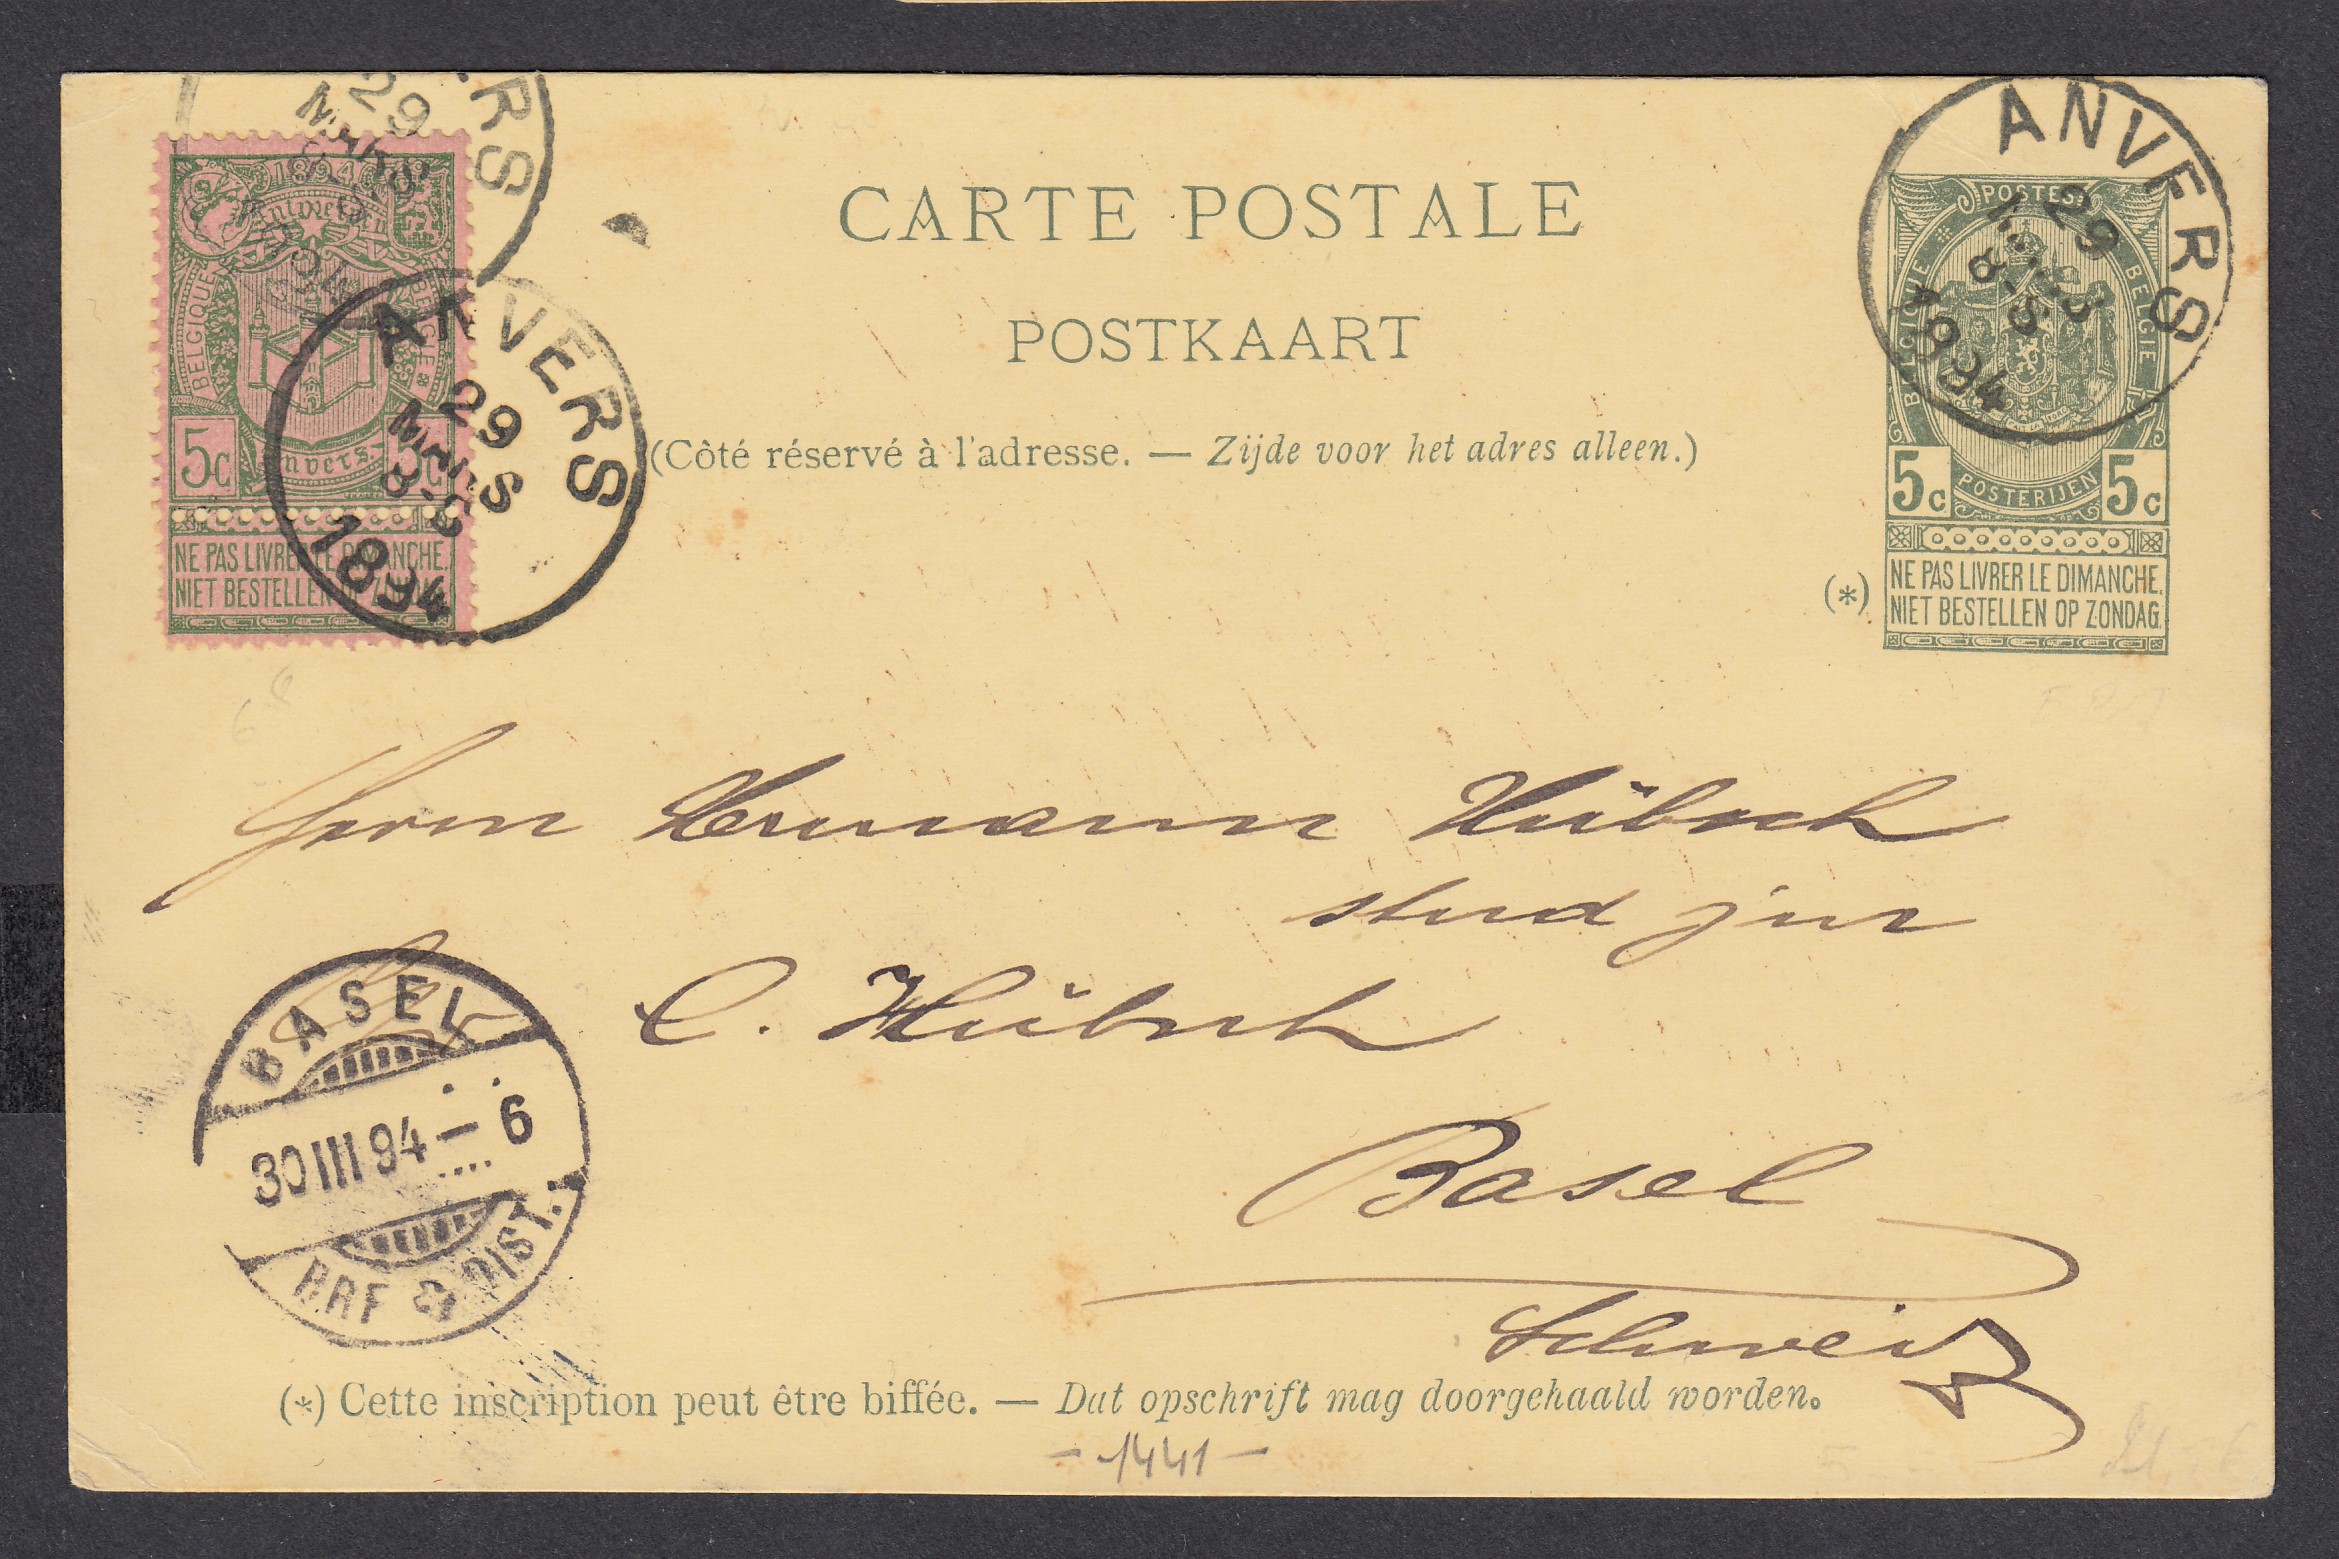 CARTE POSTALE
POSTKAART
(Côté réservé à l'adresse. — Zijde voor het adres alleen.)
ERS
29
MARS
1894
Antwerpen
BELGIQUE
BELGIË
5c
Anvers.
5c
NE PAS LIVRER LE DIMANCHE.
NIET BESTELLEN OP ZONDAG.
ANVERS
29
MARS
8-S
1894
ANVERS
29
MARS
8-S
1894
POSTES
BELGIQUE
BELGIE
5c
POSTERIJEN
5c
(*)
NE PAS LIVRER LE DIMANCHE.
NIET BESTELLEN OP ZONDAG.
Herrn Hermann Hübsch
stud jur
C. Hübsch
Basel
Schweiz
BASEL
30 III 94 — 6
BRF & DIST.
(*) Cette inscription peut être biffée. — Dat opschrift mag doorgehaald worden.
- 1441 -